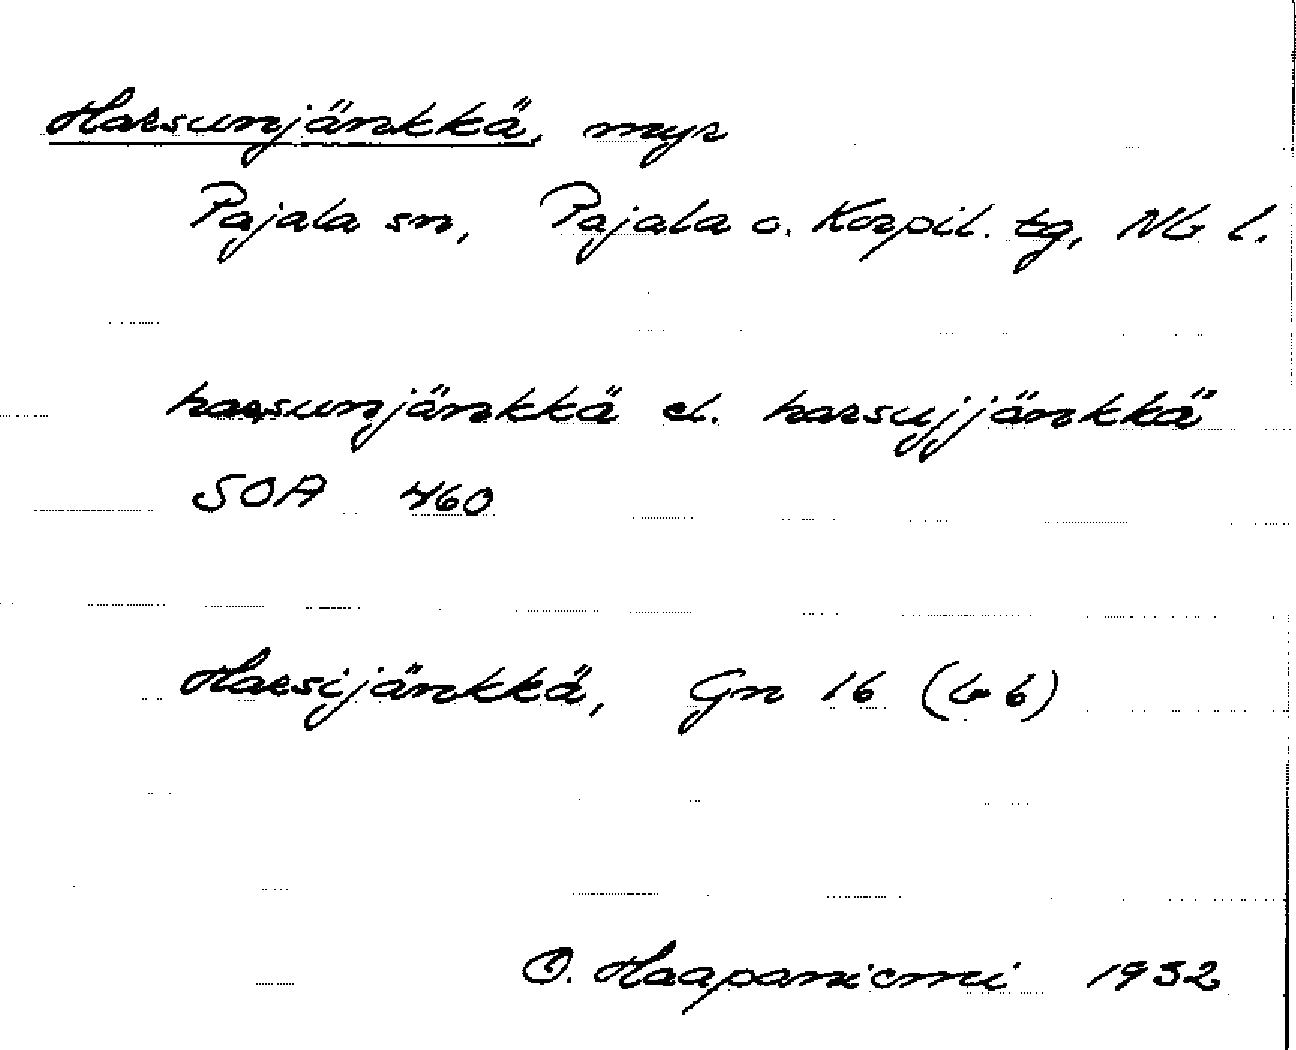 Harsunjänkkä, myr
Pajala sn, Pajala o. Korpil. tg, Nb l.
harsunjänkkä el. harsujjänkkä
SOA 460
Harsijänkkä, Gn 16 (b 6)
O. Haapaniemi 1932